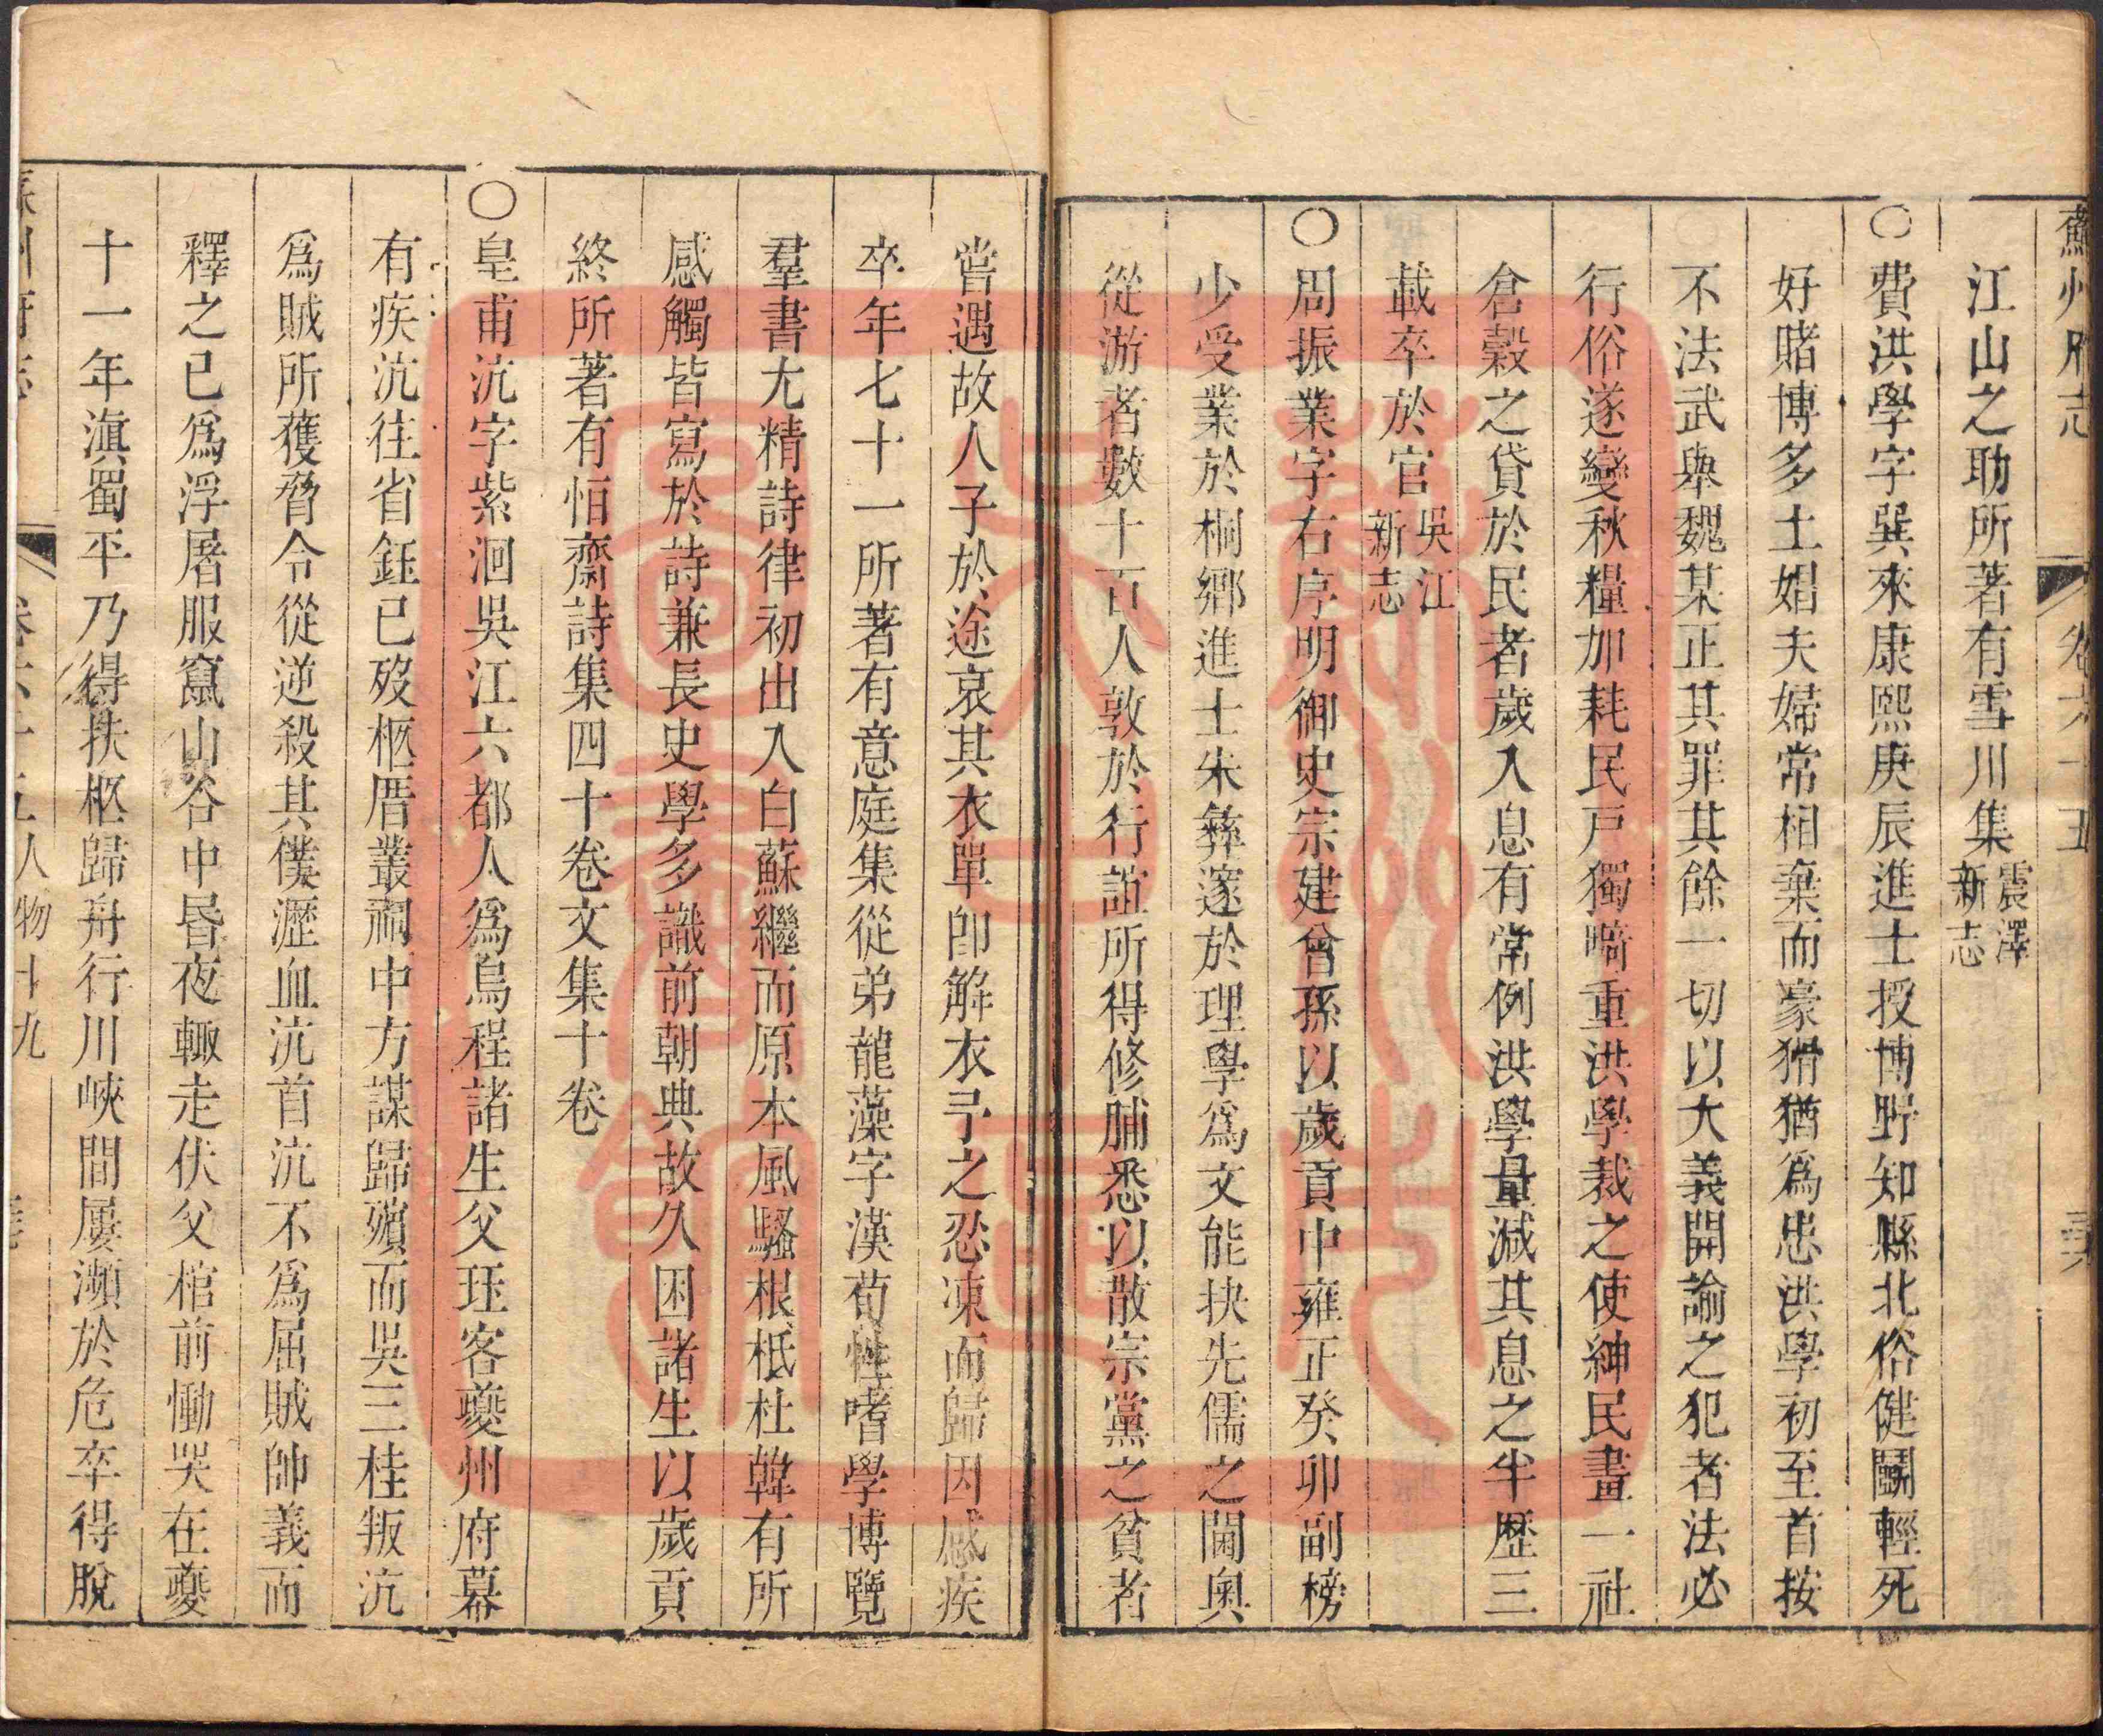 蘇州府志 卷六十五
江山之助所著有雪川集震澤新志
○費洪學字巽來康熙庚辰進士授博野知縣北俗健鬬輕死
好賭博多土娼夫婦常相棄而豪猾猶爲患洪學初至首按
不法武舉魏某正其罪其餘一切以大義開諭之犯者法必
行俗遂變秋糧加耗民戸獨畸重洪學裁之使紳民畫一社
倉穀之貸於民者歲入息有常例洪學量減其息之半歴三
載卒於官吳江新志
○周振業字右序明御史宗建曾孫以歲貢中雍正癸卯副榜
少受業於桐鄉進士朱彝邃於理學爲文能抉先儒之閫奥
從游者數十百人敦於行誼所得修脯悉以散宗黨之貧者
嘗遇故人子於途哀其衣單卽解衣予之忍凍而歸因感疾
卒年七十一所著有意庭集從弟龍藻字漢荀性嗜學博覽
羣書尤精詩律初出入白蘇繼而原本風騷根柢杜韓有所
感觸皆寫於詩兼長史學多識前朝典故久困諸生以歲貢
終所著有怕齋詩集四十卷文集十卷
○皇甫沆字紫洄吳江六都人爲烏程諸生父珏客夔州府幕
有疾沆往省鈺已歿柩厝叢祠中方謀歸殯而吳三桂叛沆
爲賊所獲脅令從逆殺其僕瀝血沆首沆不爲屈賊帥義而
釋之已爲浮屠服竄山谷中昬夜輙走伏父棺前慟哭在夔
十一年滇蜀平乃得扶柩歸舟行川峽間屢瀕於危卒得脫
人物十九